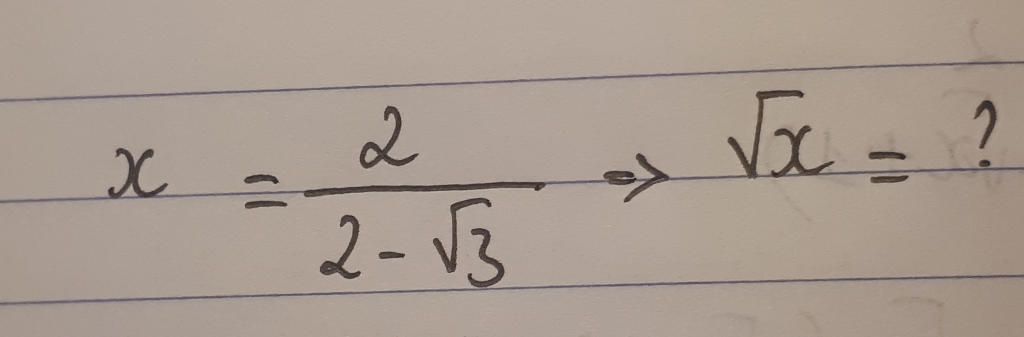 x = 2 / (2 - √3) ⇒ √x = ?